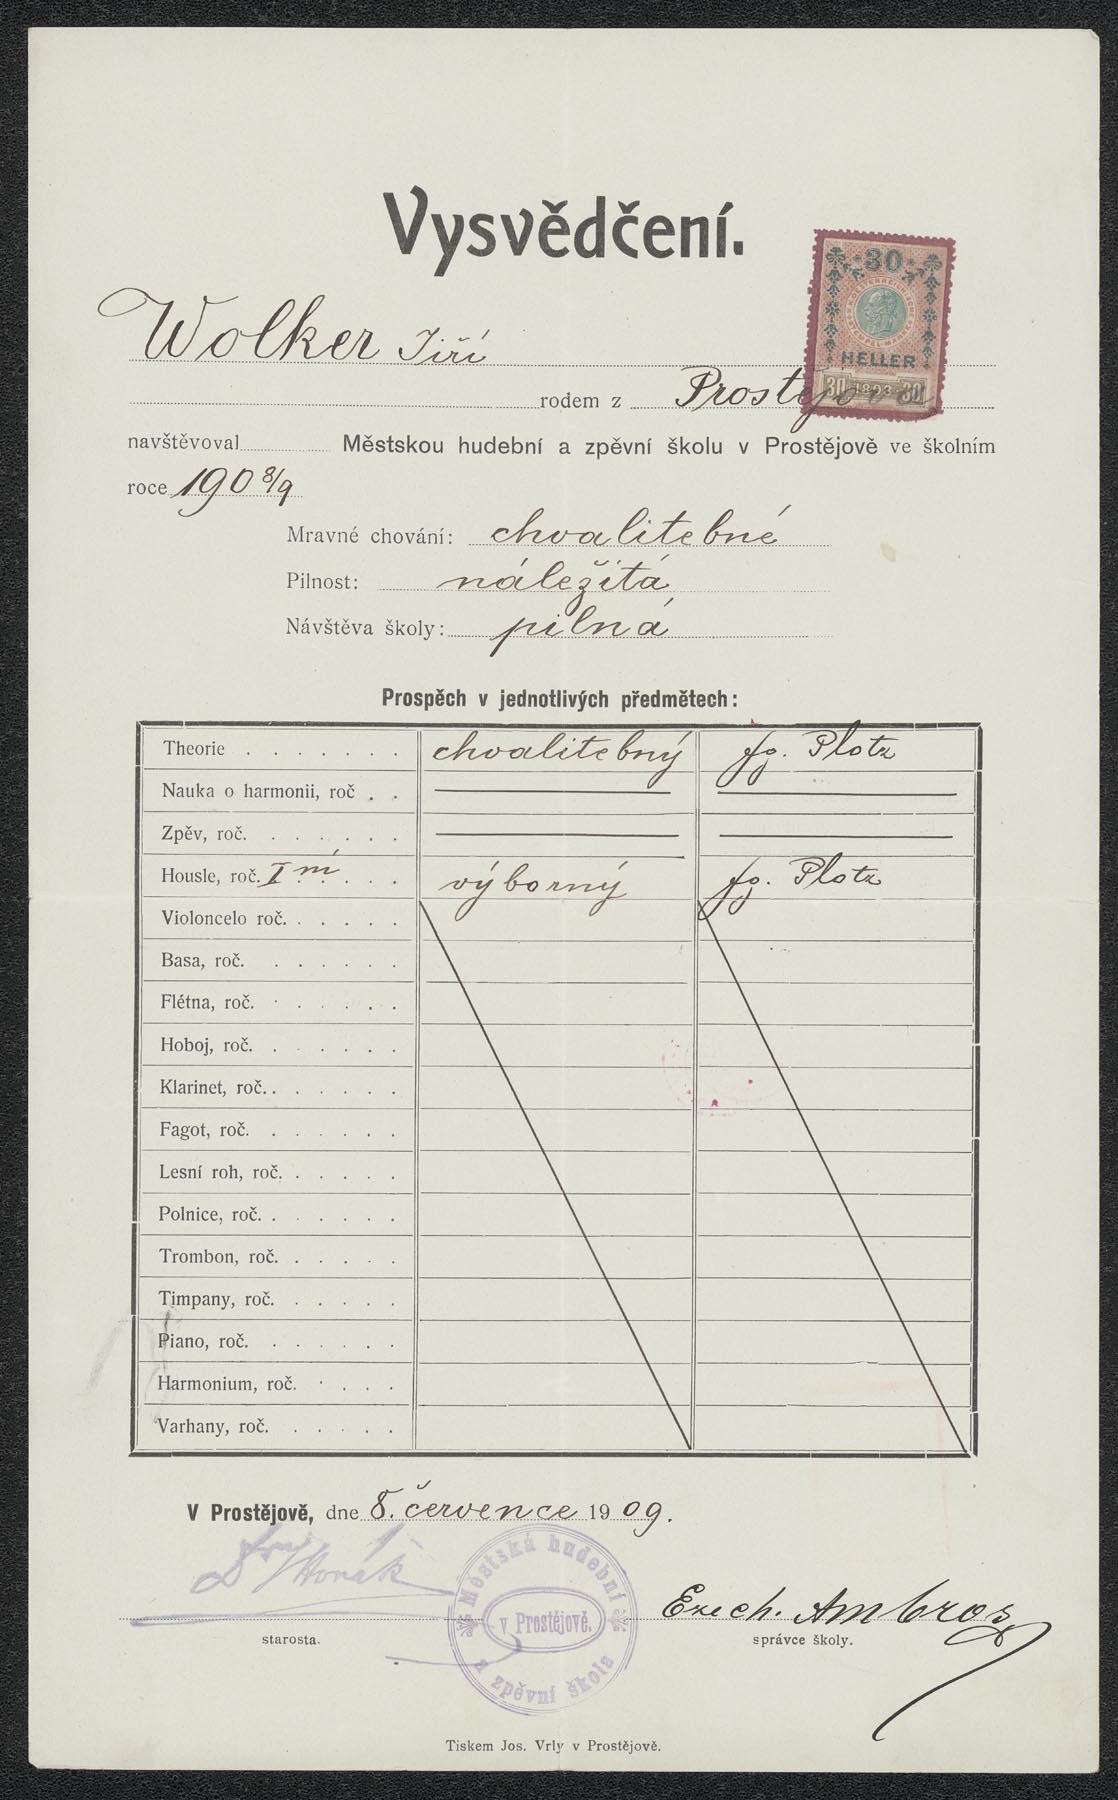 Vysvědčení.
30
HELLER
30 1898 30
Wolker Jiří
rodem z Prostějova
navštěvoval Městskou hudební a zpěvní školu v Prostějově ve školním
roce 190 8/9
Mravné chování: chvalitebné
Pilnost: náležitá
Návštěva školy: pilná
Prospěch v jednotlivých předmětech:
Theorie . . . . . . . chvalitebný fg. Plotz
Nauka o harmonii, roč . .
Zpěv, roč. . . . . . .
Housle, roč. I m . . . výborný fg. Plotz
Violoncelo roč. . . . . .
Basa, roč. . . . . . .
Flétna, roč. . . . . . .
Hoboj, roč. . . . . . .
Klarinet, roč. . . . . . .
Fagot, roč. . . . . . .
Lesní roh, roč. . . . . .
Polnice, roč. . . . . . .
Trombon, roč. . . . . .
Timpany, roč. . . . . .
Piano, roč. . . . . . .
Harmonium, roč. . . . .
Varhany, roč. . . . . .
V Prostějově, dne 8. července 1909.
Dr Horák
Městská hudební
a zpěvní škola
v Prostějově.
Ezech. Ambros
starosta.
správce školy.
Tiskem Jos. Vrly v Prostějově.